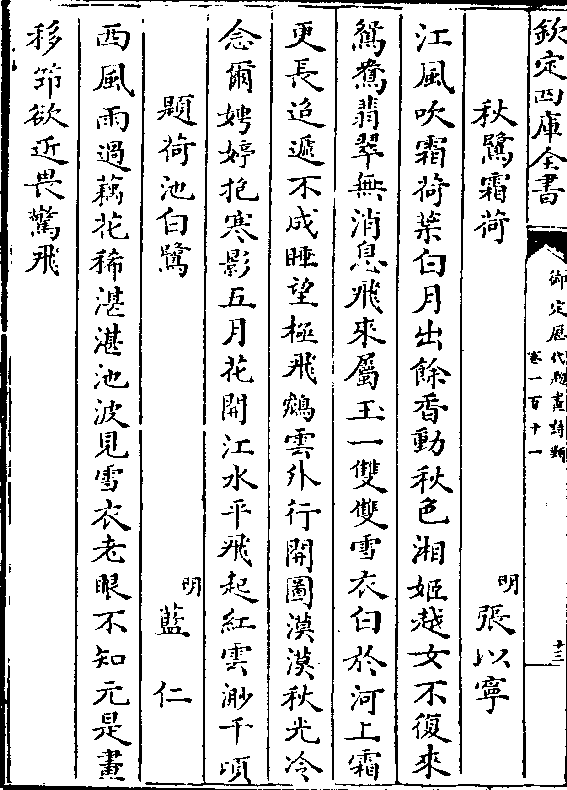 欽定四庫全書
御定歷代題畫詩類
卷一百十一
十三
秋鷺霜荷
明張以寧
江風吹霜荷葉白月出餘香動秋色湘姬越女不復來
鴛鴦翡翠無消息飛來屬玉一雙雙雪衣白於河上霜
更長迢遞不成睡望極飛鴻雲外行開圖漠漠秋光冷
念爾娉婷抱寒影五月花開江水平飛起紅雲渺千頃
題荷池白鷺
明藍仁
西風雨過藕花稀湛湛池波見雪衣老眼不知元是畫
移笻欲近畏驚飛